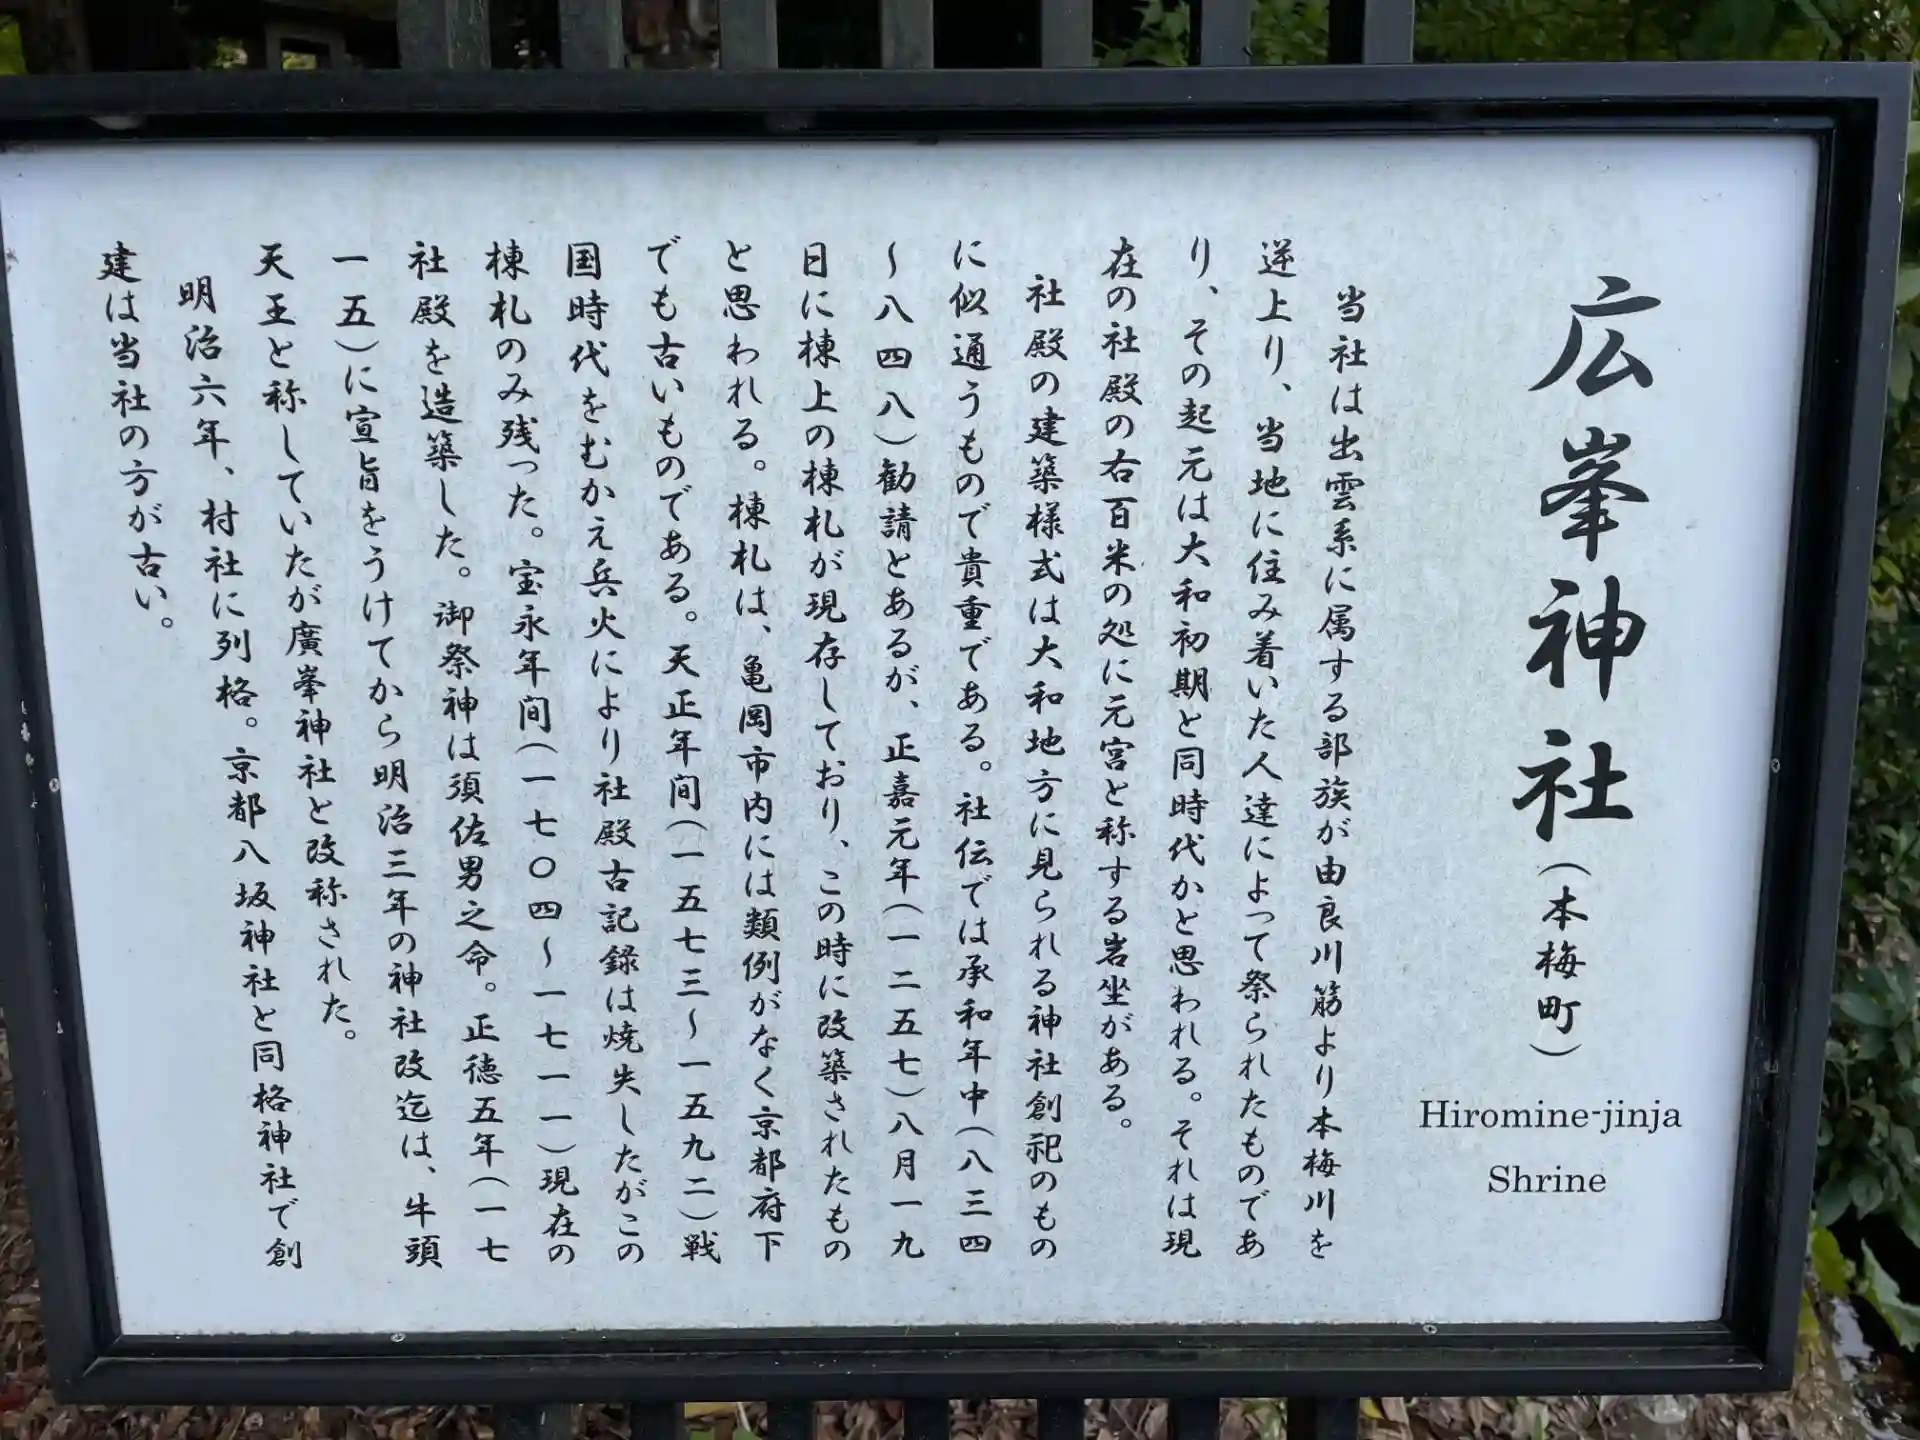 広峯神社(本梅町)
Hiromine-jinja
Shrine
当社は出雲系に属する部族が由良川筋より本梅川を
逆上り、当地に住み着いた人達によって祭られたものであ
り、その起元は大和初期と同時代かと思われる。それは現
在の社殿の右百米の処に元宮と称する岩坐がある。
社殿の建築様式は大和地方に見られる神社創祀のもの
に似通うもので貴重である。社伝では承和年中(八三四
〜八四八)勧請とあるが、正嘉元年(一二五七)八月一九
日に棟上の棟札が現存しており、この時に改築されたもの
と思われる。棟札は、亀岡市内には類例がなく京都府下
でも古いものである。天正年间(一五七三〜一五九二)戦
国時代をむかえ兵火により社殿古記録は焼失したがこの
棟札のみ残った。宝永年间(一七〇四〜一七一一)現在の
社殿を造築した。御祭神は須佐男之命。正徳五年(一七
一五)に宣旨をうけてから明治三年の神社改迄は、牛頭
天王と称していたが廣峯神社と改称された。
明治六年、村社に列格。京都八坂神社と同格神社で創
建は当社の方が古い。